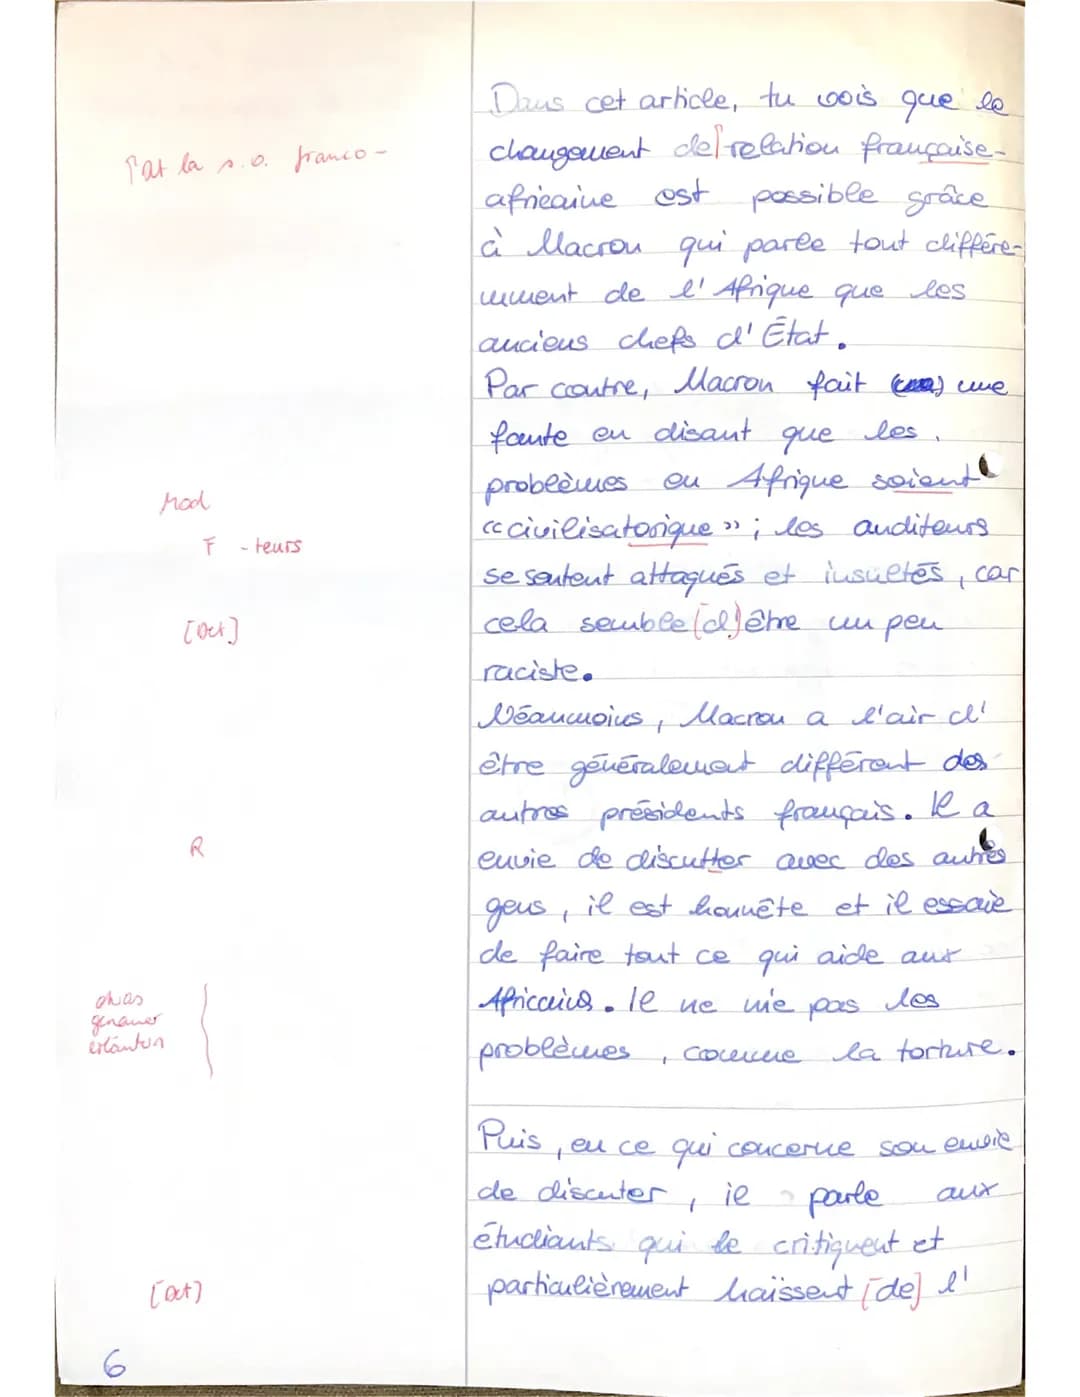 Dans cet article, tu vois que le
changement de relation française-
africaine est possible grâce
à Macron qui parle tout différe-
mment de l'Afrique que les
anciens chefs d'État.
Par contre, Macron fait une
faute en disant que les
problèmes en Afrique soient
« civilisatorique » ; les auditeurs
se sentent attaqués et insultés, car
cela semble [d'] être un peu
raciste.
Néanmoins, Macron a l'air d'
être généralement différent des
autres présidents français. Il a
envie de discutter avec des autres
gens, il est honnête et il essaie
de faire tout ce qui aide aux
Africains. Il ne nie pas les
problèmes, comme la torture.
Puis, en ce qui concerne son envie
de discuter, il parle aux
étudiants qui le critiquent et
particulièrement haïssent [de] l'
la s.o. franco-
Mod
F -teurs
[Det]
R
etwas
genauer
erläutern
[Det]
6